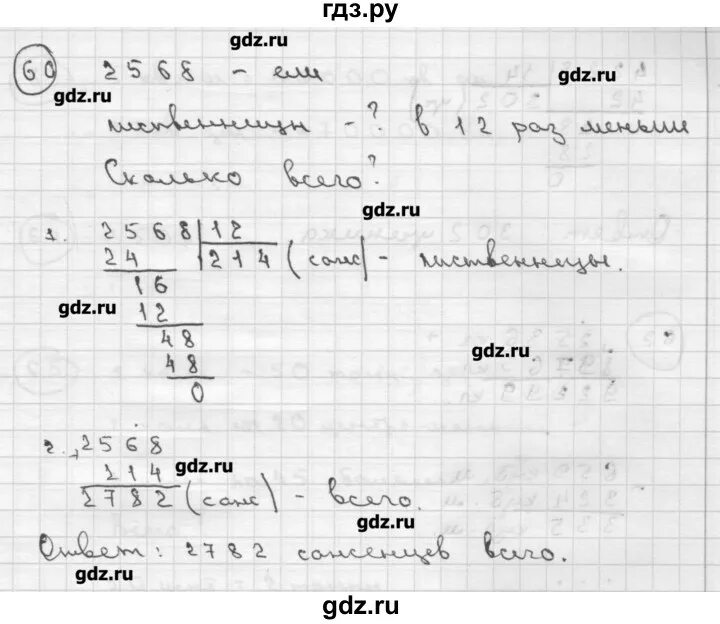 гдз.ру
gdz.ru
60 2568 - ели
gdz.ru
gdz.ru
лиственницы - ? в 12 раз меньше
Сколько всего?
gdz.ru
1. 2568 | 12
24 214 (саж) - лиственницы.
16
gdz.ru
12
48
gdz.ru
48
0
2. + 2568
214 gdz.ru
2782 (саж) - всего.
gdz.ru
Ответ: 2782 саженцев всего.
gdz.ru
gdz.ru